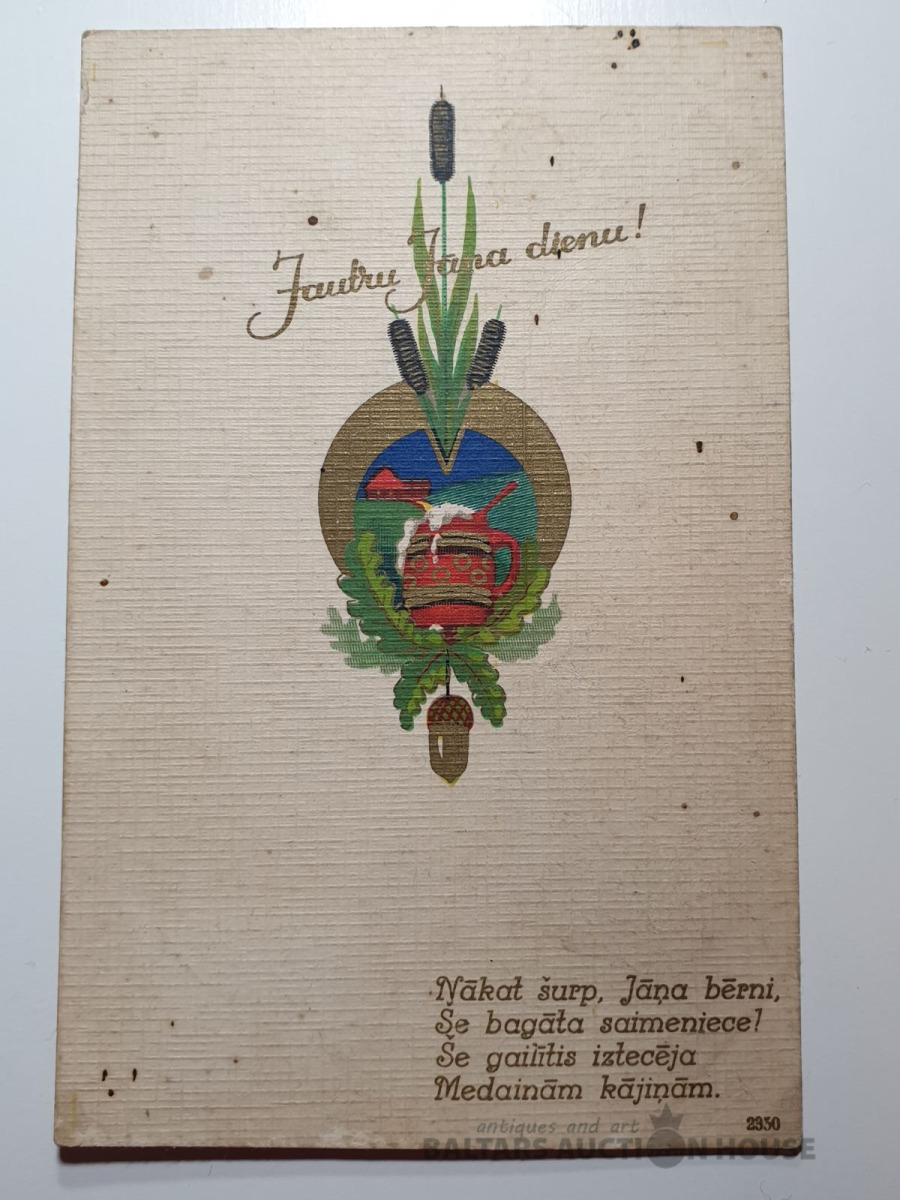 Jautru Jāņa dienu!
Nākat šurp, Jāņa bērni,
Še bagāta saimeniece!
Še gailītis iztecēja
Medainām kājiņām.
2930
antiques and art
BALTARS AUCTION HOUSE